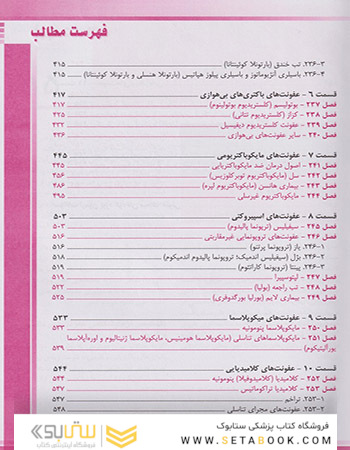 فهرست مطالب
۳-۲۳۶. تب خندق (بارتونلا کوئینتانا) ۴۱۵
۴-۲۳۶. باسیلری آنژیوماتوز و باسیلری پیلوز هپاتیس (بارتونلا هنسلی و بارتونلا کوئینتانا) ۴۱۵
قسمت ۶ - عفونت‌های باکتری‌های بی‌هوازی ۴۱۷
فصل ۲۳۷ - بوتولیسم (کلستریدیوم بوتولینوم) ۴۱۷
فصل ۲۳۸ - کزاز (کلستریدیوم تتانی) ۴۲۵
فصل ۲۳۹ - عفونت کلستریدیوم دیفیسیل ۴۳۲
فصل ۲۴۰ - سایر عفونت‌های بی‌هوازی ۴۳۶
قسمت ۷ - عفونت‌های مایکوباکتریومی ۴۴۵
فصل ۲۴۱ - اصول درمان ضد مایکوباکتریایی ۴۴۵
فصل ۲۴۲ - سل (مایکوباکتریوم توبرکلوزیس) ۴۵۶
فصل ۲۴۳ - بیماری هانسن (مایکوباکتریوم لپره) ۴۸۶
فصل ۲۴۴ - مایکوباکتریوم غیرسلی ۴۹۵
قسمت ۸ - عفونت‌های اسپیروکتی ۵۰۳
فصل ۲۴۵ - سیفیلیس (تریپونما پالیدوم) ۵۰۳
فصل ۲۴۶ - عفونت‌های تریپونمایی غیرمقاربتی ۵۱۶
۱-۲۴۶. یاز (تریپونما پرتنو) ۵۱۶
۲-۲۴۶. بژل (سیفیلیس اندمیک؛ تریپونما پالیدوم اندمیکوم) ۵۱۸
۳-۲۴۶. پینتا (تریپونما کاراتئوم) ۵۱۸
فصل ۲۴۷ - لپتوسپیرا ۵۱۹
فصل ۲۴۸ - تب راجعه (بورلیا) ۵۲۲
فصل ۲۴۹ - بیماری لایم (بورلیا بورگدوفری) ۵۲۵
قسمت ۹ - عفونت‌های میکوپلاسما ۵۳۳
فصل ۲۵۰ - مایکوپلاسما پنومونیه ۵۳۳
فصل ۲۵۱ - مایکوپلاسماهای تناسلی (مایکوپلاسما هومینیس، مایکوپلاسما ژنیتالیوم و اوره‌آپلاسما
یورآلیتیکوم) ۵۳۹
قسمت ۱۰ - عفونت‌های کلامیدیایی ۵۴۴
فصل ۲۵۲ - کلامیدیا (کلامیدوفیلا) پنومونیه ۵۴۴
فصل ۲۵۳ - کلامیدیا تراکوماتیس ۵۴۷
۱-۲۵۳. تراخم ۵۴۷
۲-۲۵۳. عفونت‌های مجرای تناسلی ۵۴۸
فروشگاه کتاب پزشکی ستابوک
WWW.SETABOOK.COM
ستابوک
فروشگاه اینترنتی کتاب